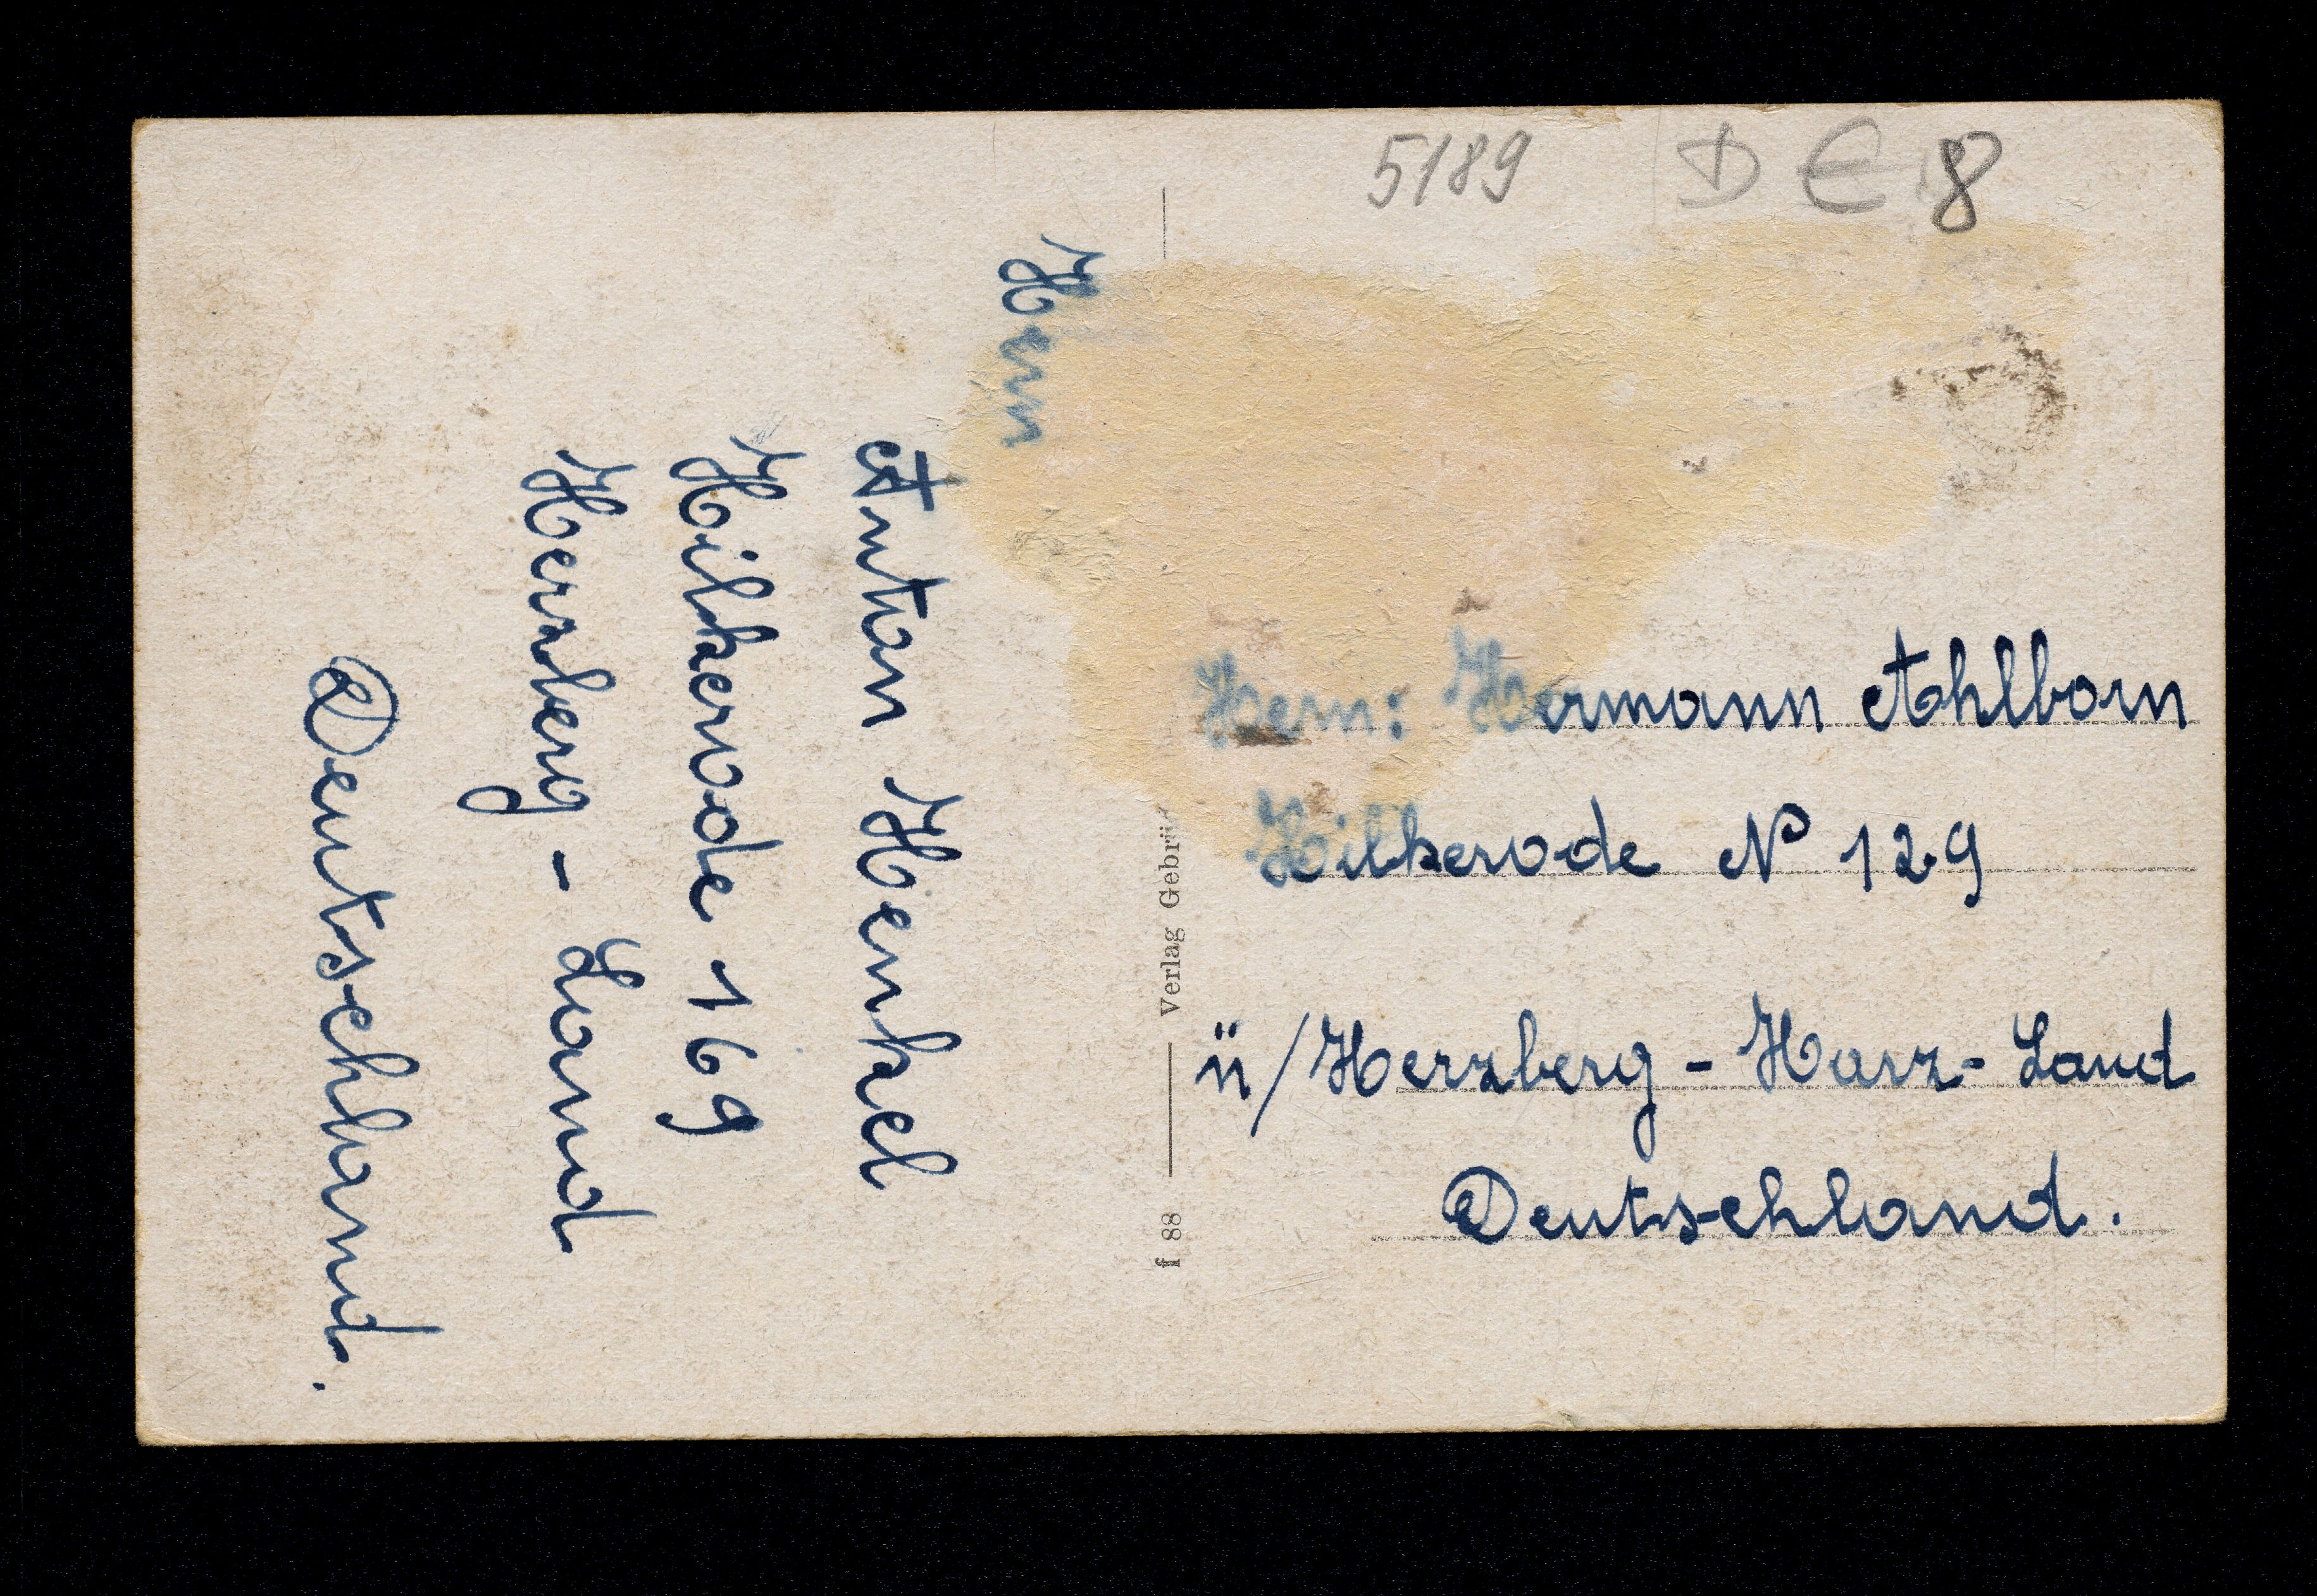 5189 D € 8
Hern
Anton Henkel
Hilkerode 169
Herzberg - Land
Deutschland.
Verlag Gebrü
f 88
Hern: Hermann Ahlborn
Hilkerode No 129
ü/Herzberg - Harz - Land
Deutschland.